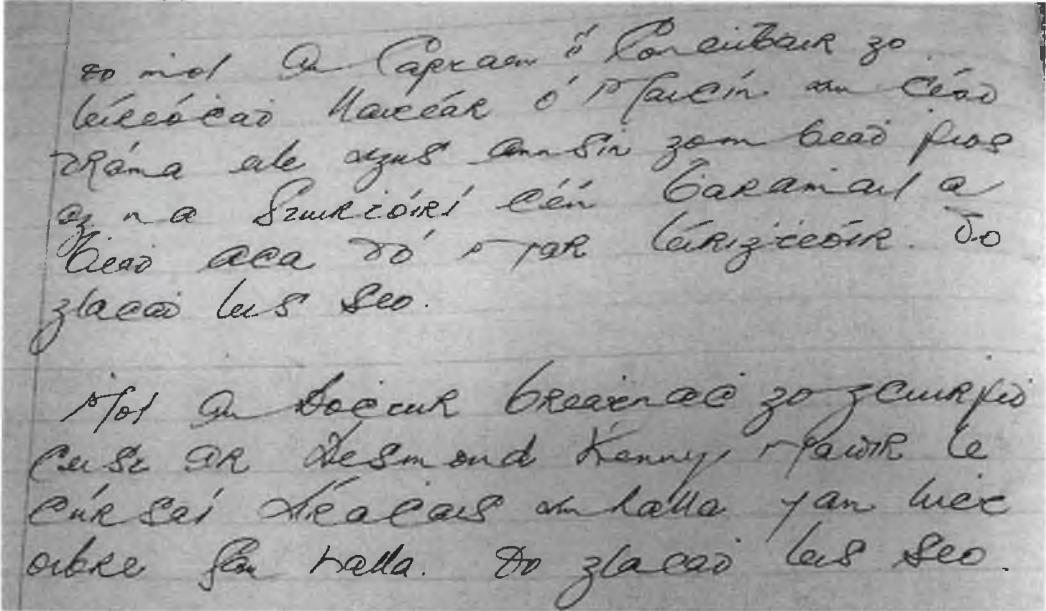 do mol an Captaen ó Conċubair go
léireóċaḋ Uaitéar ó Máirtín an ċéad
dráma eile agus annsin gom beaḋ fios
ag na Stiurtóirí cén baraṁail a
beaḋ aca dó mar léirigteóir. Do
glacaḋ leis seo.
Mol an Doċtur Breatnaċ go gcuirfiḋ
ceist ar Desmond Kenny, maidir le
cúrsaí áraċais an halla san
oibre san halla. Do glacaḋ leis seo.